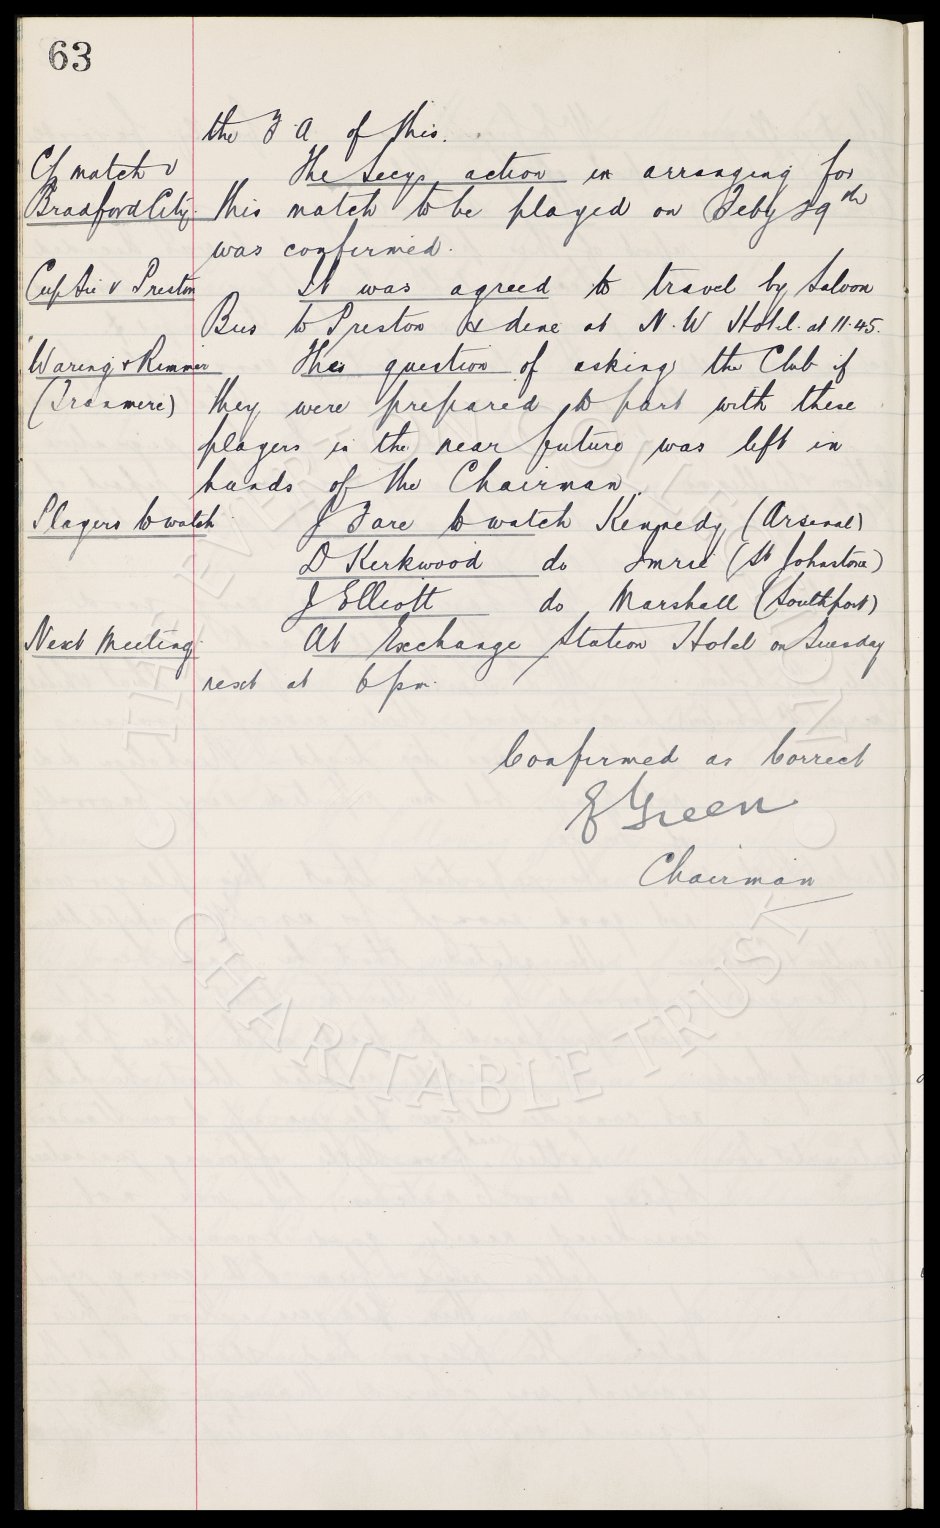 63
the F.A. of this.
Cl match v The Secys action in arranging for
Bradford City. this match to be played on Feby 29th
was confirmed.
Cup tie v Preston It was agreed to travel by Saloon
Bus to Preston & dine at N.W Hotel. at 11.45.
Waring & Rimmer The question of asking the Club if
(Tranmere) they were prepared to part with these
players in the near future was left in
hands of the Chairman.
Players to watch J Fare to watch Kennedy (Arsenal)
D Kirkwood do Imrie (St Johnstone)
J Elliott do Marshall (Southport)
Next Meeting. At Exchange Station Hotel on Tuesday
next at 6pm.
Confirmed as Correct
E Green
Chairman
THE EVERTON COLLECTION
CHARITABLE TRUST